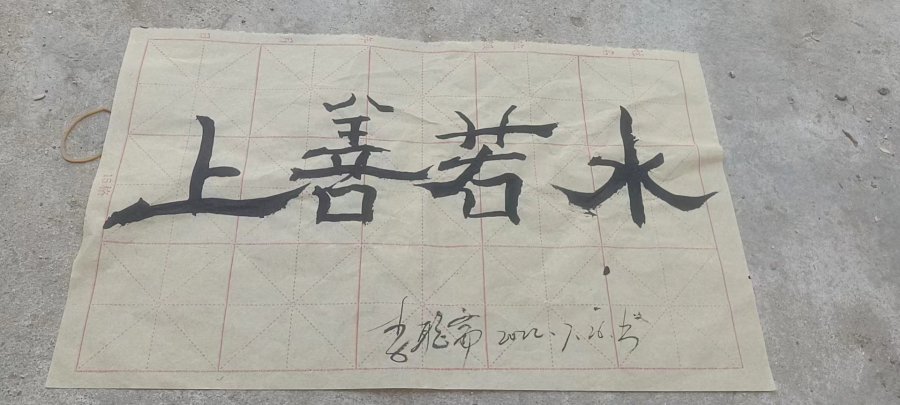 上善若水
李聪斋 2022.7.26.书